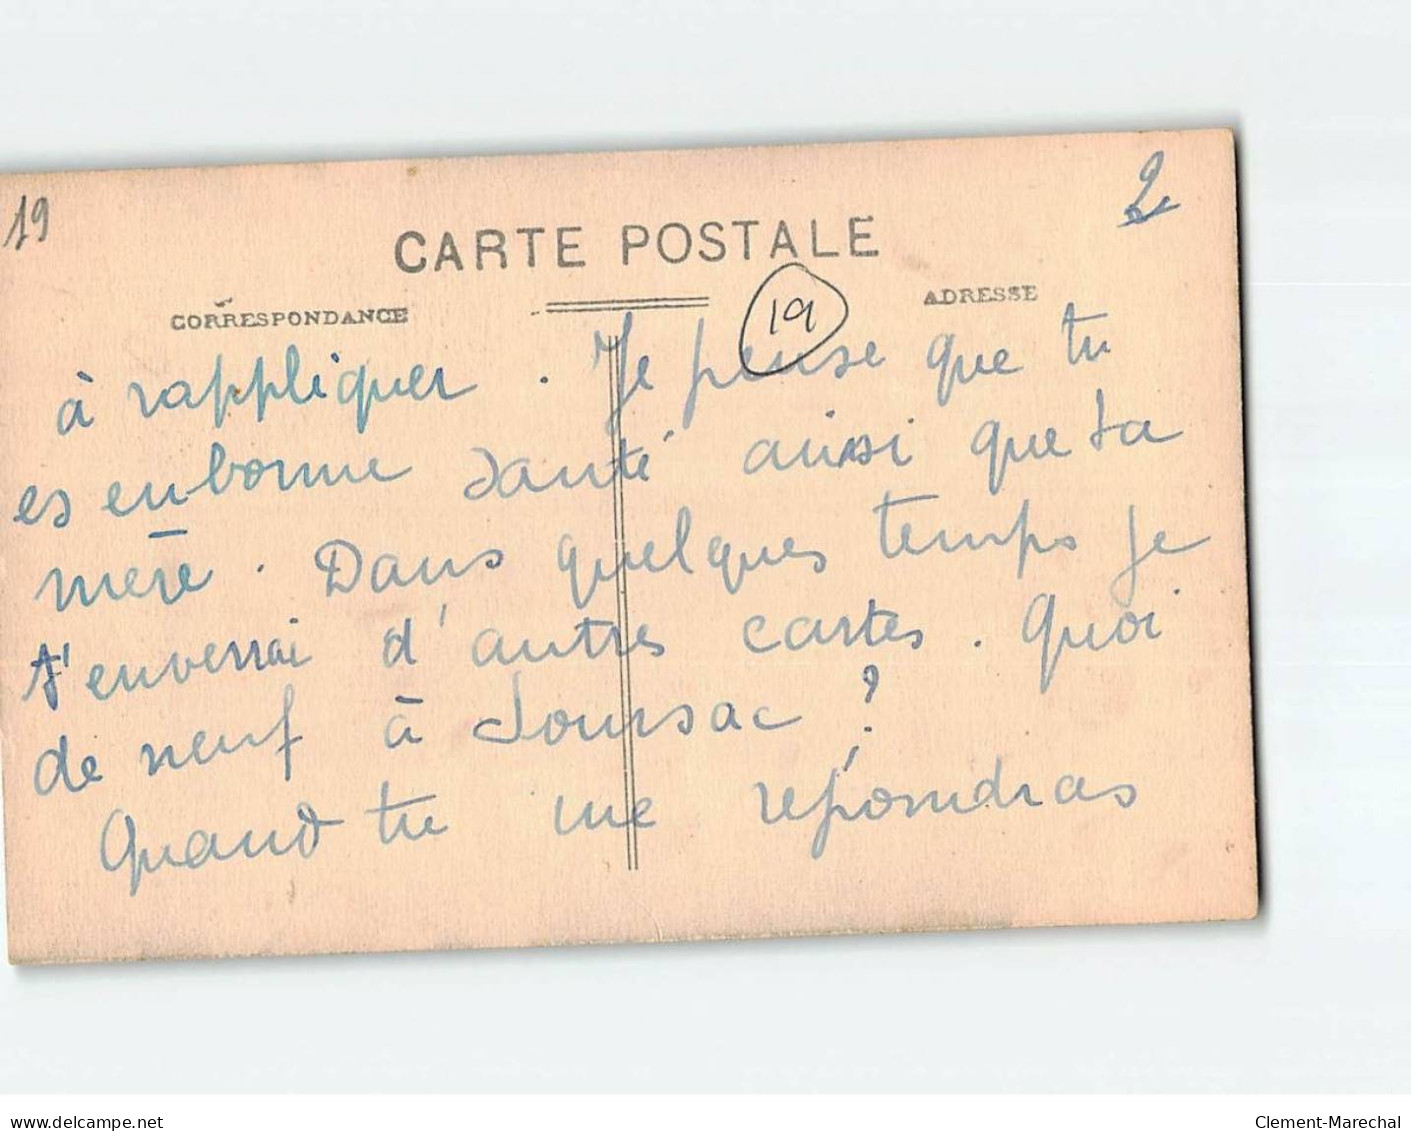 19
2
CARTE POSTALE
CORRESPONDANCE
ADRESSE
19
à rappliquer. Je pense que tu
es en bonne santé ainsi que ta
mère. Dans quelques temps je
t'enverrai d'autres cartes. Quoi
de neuf à Soursac ?
Quand tu me répondras
delcampe.net
Clement-Marechal